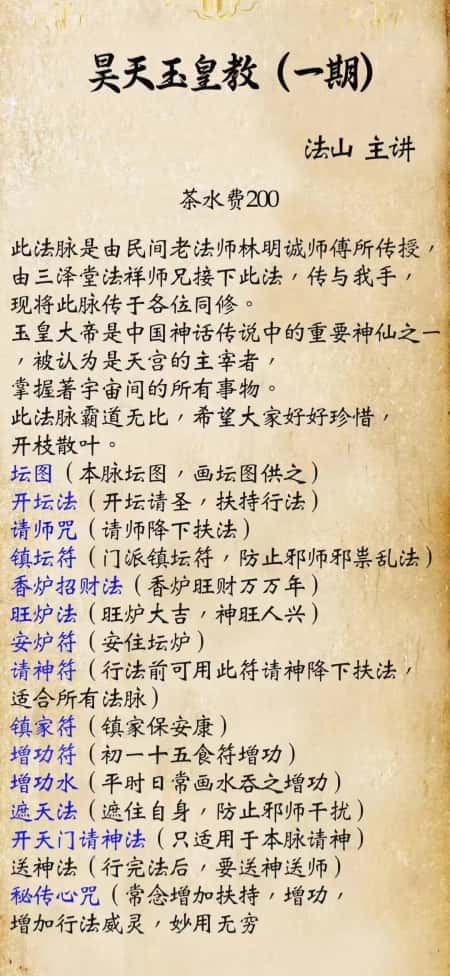 昊天玉皇教（一期）
法山 主讲
茶水费200
此法脉是由民间老法师林明诚师傅所传授，
由三泽堂法祥师兄接下此法，传与我手，
现将此脉传于各位同修。
玉皇大帝是中国神话传说中的重要神仙之一
，被认为是天宫的主宰者，
掌握著宇宙间的所有事物。
此法脉霸道无比，希望大家好好珍惜，
开枝散叶。
坛图（本脉坛图，画坛图供之）
开坛法（开坛请圣，扶持行法）
请师咒（请师降下扶法）
镇坛符（门派镇坛符，防止邪师邪祟乱法）
香炉招财法（香炉旺财万万年）
旺炉法（旺炉大吉，神旺人兴）
安炉符（安住坛炉）
请神符（行法前可用此符请神降下扶法，
适合所有法脉）
镇家符（镇家保安康）
增功符（初一十五食符增功）
增功水（平时日常画水吞之增功）
遮天法（遮住自身，防止邪师干扰）
开天门请神法（只适用于本脉请神）
送神法（行完法后，要送神送师）
秘传心咒（常念增加扶持，增功，
增加行法威灵，妙用无穷